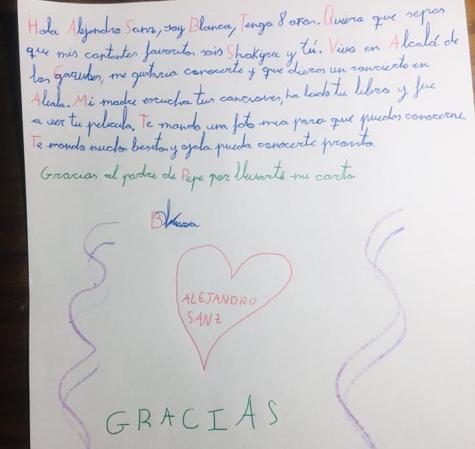 Hola Alejandro Sanz, soy Blanca, Tengo 8 años. Quiero que sepas
que mis cantantes favoritos sois Shakira y tú. Vivo en Alcalá de
los Gazules, me gustaria conocerte y que dieras un concierto en
Alcala. Mi madre escucha tus canciones, ha leido tu libro y fue
a ver tu película, Te mando una foto mia para que puedas conocerme
Te mando muchos besitos y ojala pueda conocerte pronto.
Gracias al padre de Pepe por llevarte mi carta
Blanca
ALEJANDRO
SANZ
GRACIAS